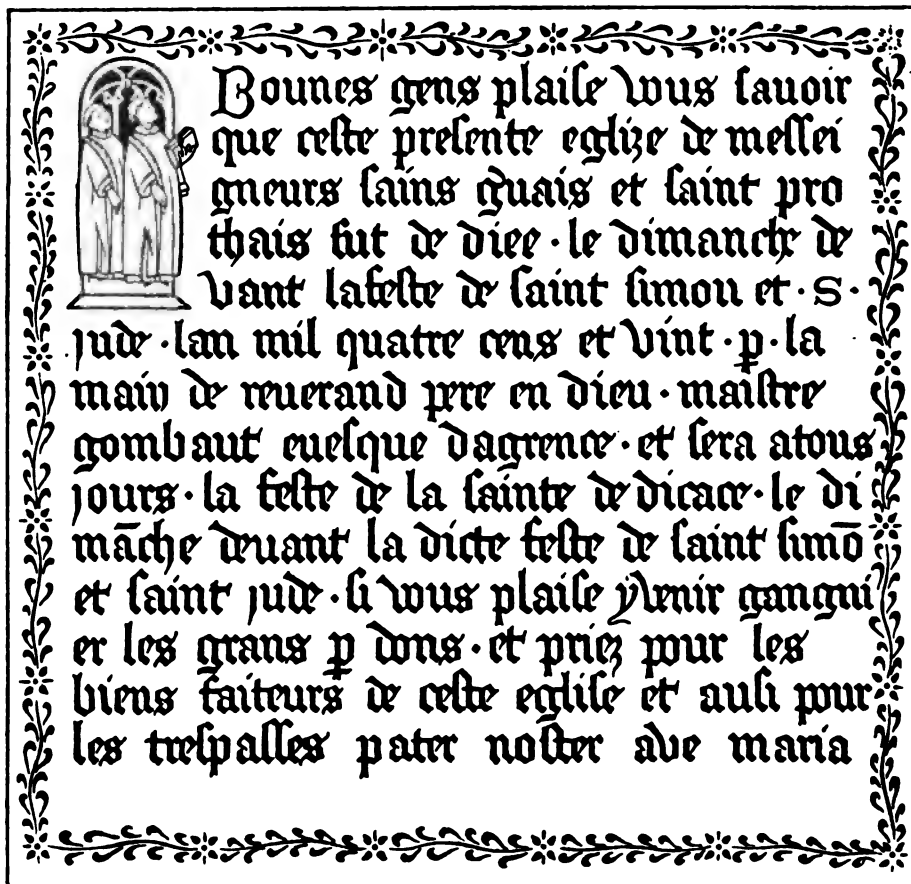 Bounes gens plaise vous sauoir
que ceste presente eglize de messei
gneurs sains g̃uais et saint pro
thais fut de diee · le dimanche de
vant lafeste de saint simon et · S ·
jude · lan mil quatre cens et vint · ꝑ · la
main de reuerand pere en dieu · maistre
gombaut euesque dagrence · et sera atous
jours · la feste de la sainte de dicace · le di
mãche deuant la dicte feste de saint simõ
et saint jude · si vous plaise y venir gangni
er les grans ꝑ dons · et priez pour les
biens faiteurs de ceste eglise et ausi pour
les trespasses pater noster ave maria